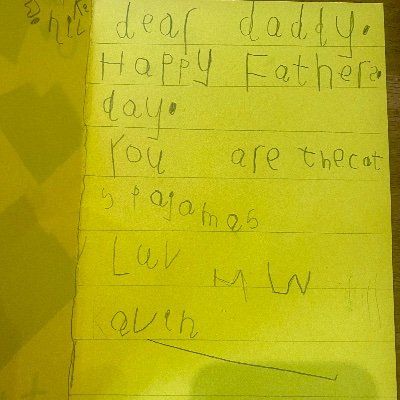 dear daddy.
Happy Fathers
day.
You are thecat
s Pajamas
Luv
M W
aven